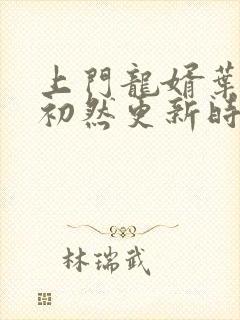 上門龍婿葉
初然更新時
林瑞武